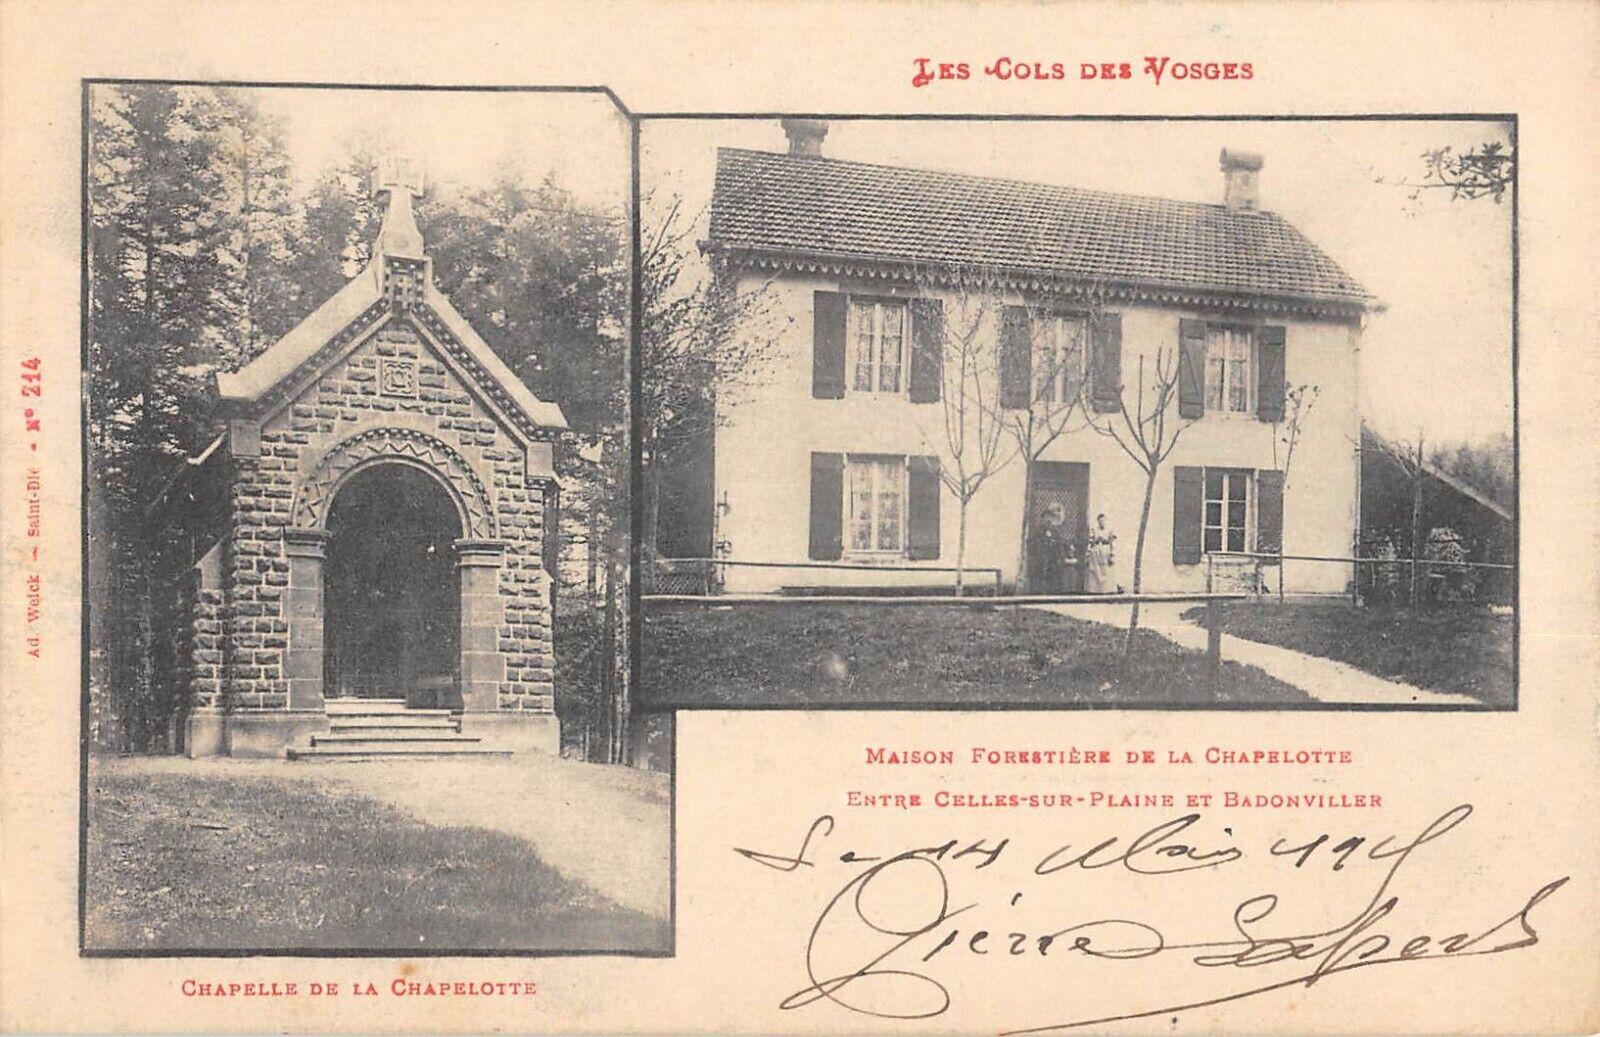 Les Cols des Vosges
Ad. Weick - Saint-Dié - N° 214
Maison Forestière de la Chapelotte
Entre Celles-sur-Plaine et Badonviller
14 Mai
Pierre
Chapelle de la Chapelotte